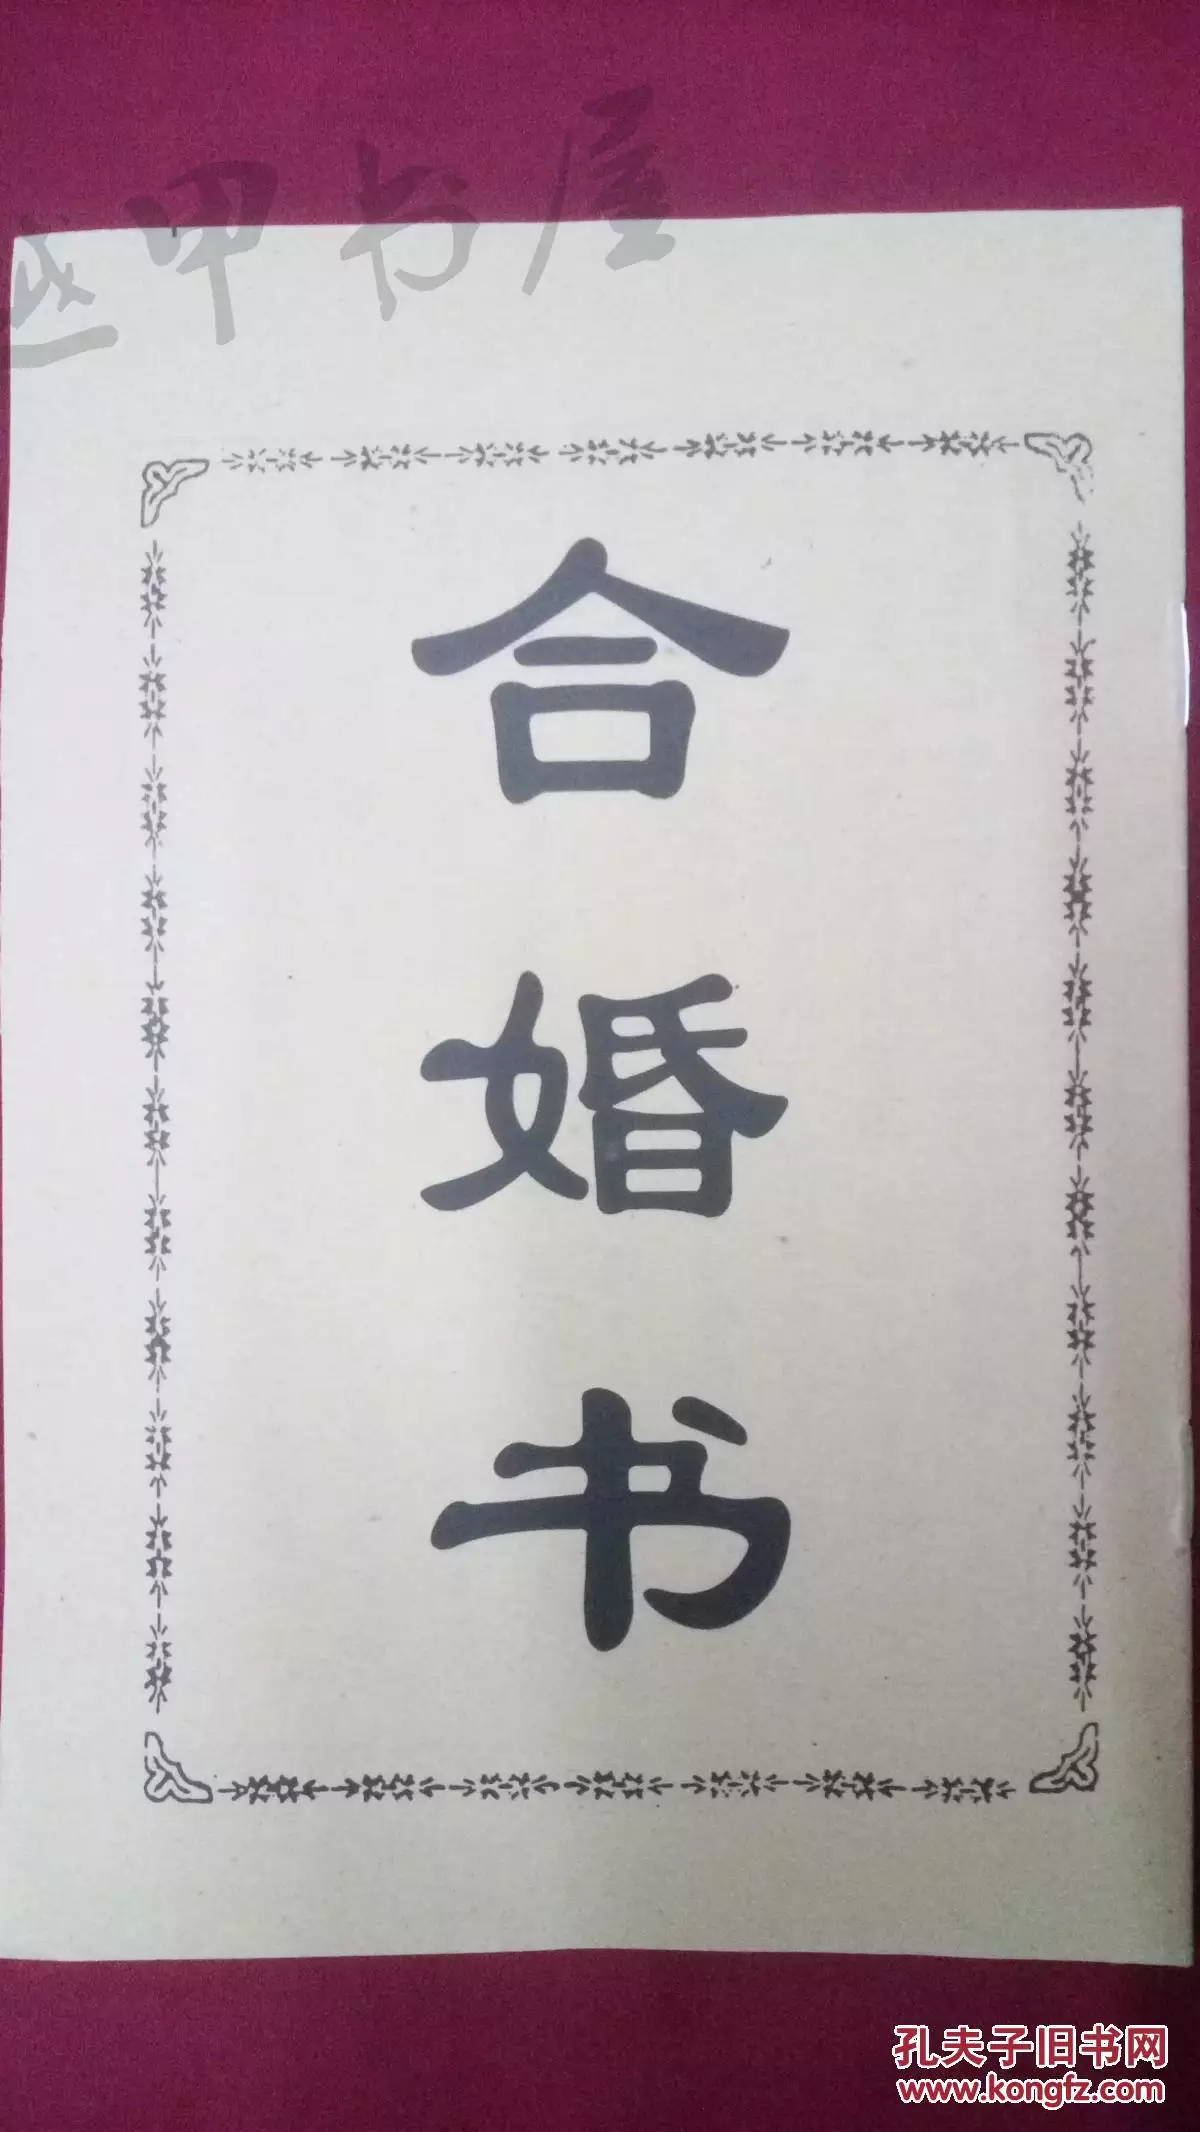 越甲书屋
合
婚
书
孔夫子旧书网
www.kongfz.com